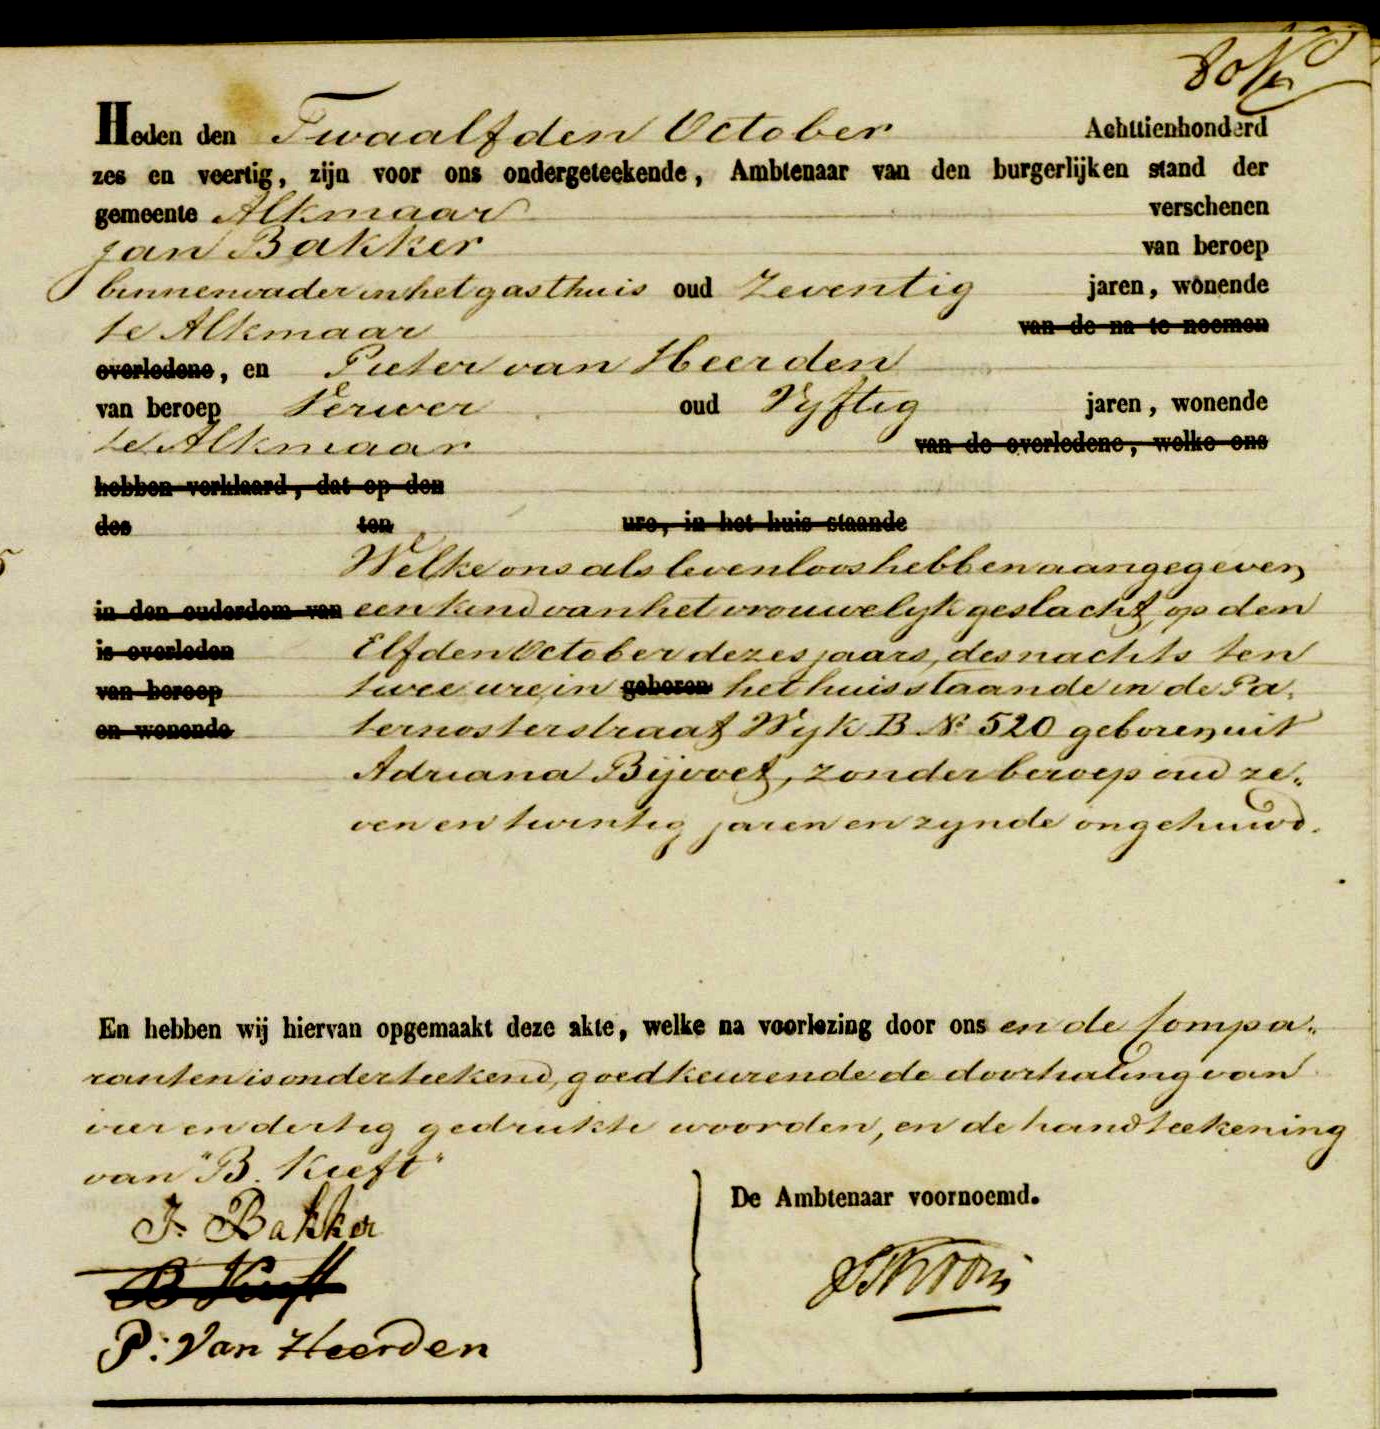 Heden den Twaalfden October Achttienhonderd
zes en veertig, zijn voor ons ondergeteekende, Ambtenaar van den burgerlijken stand der
gemeente Alkmaar verschenen
Jan Bakker van beroep
binnenvader in het gasthuis oud Zeventig jaren, wonende
te Alkmaar van de na te noemen
overledene, en Pieter van Heerden
van beroep Verwer oud Vyftig jaren, wonende
te Alkmaar van de overledene, welke ons
hebben verklaard, dat op den
des ten ure, in het huis staande
Welke ons als levenloos hebben aangegeven
in den ouderdom van een kind van het vrouwelyk geslacht, op den
is overleden Elfden October dezes jaars, des nachts ten
van beroep twee ure, in geboren het huis staande in de Pa-
en wonende ternosterstraat Wyk B No 520 geboren, uit
Adriana Bijvoet, zonder beroep oud ze-
ven en twintig jaren en zynde ongehuwd.
En hebben wij hiervan opgemaakt deze akte, welke na voorlezing door ons en de Compa-
ranten is onderteekend, goedkeurende de doorhaling van
vier en dertig gedrukte woorden, en de handteekening
van "B. Kieft"
De Ambtenaar voornoemd.
J. Bakker
B Kieft
P: Van Heerden